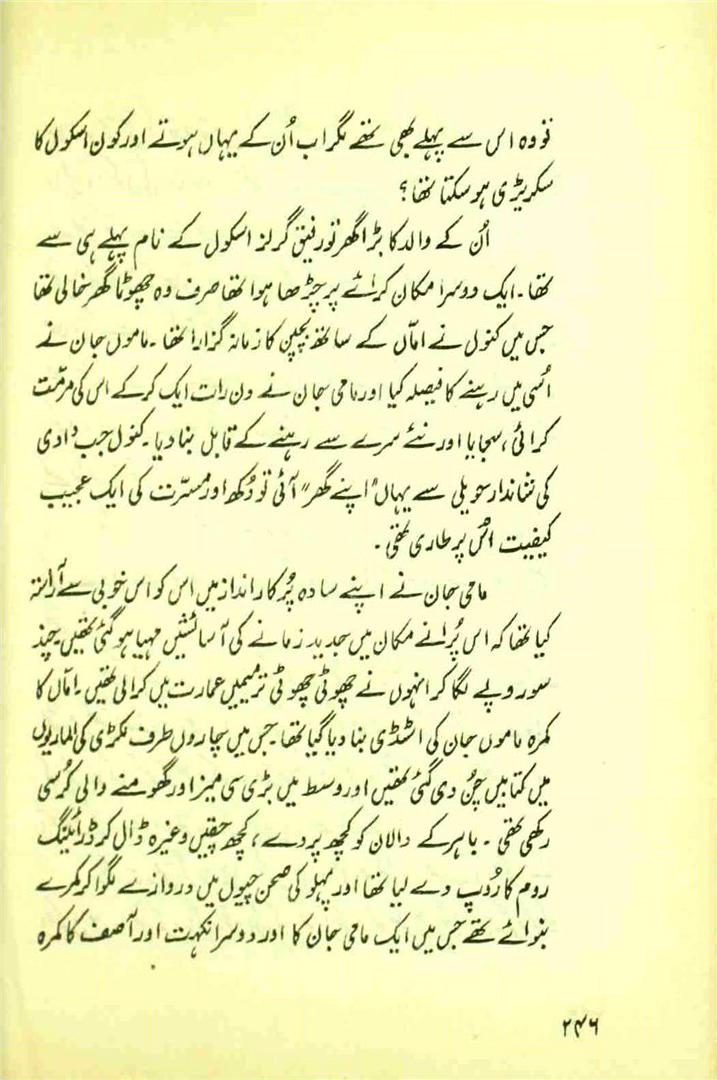 تو وہ اس سے پہلے بھی تھے مگر اب اُن کے یہاں ہوتے اور کون اسکول کا
سکریڑی ہو سکتا تھا؟
اُن کے والد کا بڑا گھر تو رفیق گرلز اسکول کے نام پہلے ہی سے
تھا۔ ایک دوسرا مکان کرائے پر چڑھا ہوا تھا صرف وہ چھوٹا گھر خالی تھا
جس میں کنول نے امّاں کے ساتھ بچپن کا زمانہ گزارا تھا۔ ماموں جان نے
اُسی میں رہنے کا فیصلہ کیا اور مامی جان نے دن رات ایک کر کے اس کی مرمّت
کرائی، سجایا اور نئے سرے سے رہنے کے قابل بنا دیا۔ کنول جب دادی
کی شاندار حویلی سے یہاں "اپنے گھر" آئی تو دُکھ اور مسرّت کی ایک عجیب
کیفیت اس پر طاری تھی۔
مامی جان نے اپنے سادہ پُرکار انداز میں اس کو اس خوبی سے آراستہ
کیا تھا کہ اس پُرانے مکان میں جدید زمانے کی آسائشیں مہیا ہو گئی تھیں چند
سو روپے لگا کر انہوں نے چھوٹی چھوٹی ترمیمیں عمارت میں کرالی تھیں۔ امّاں کا
کمرہ ماموں جان کی اسٹڈی بنا دیا گیا تھا۔ جس میں چاروں طرف لکڑی کی الماریوں
میں کتابیں چُن دی گئی تھیں اور وسط میں بڑی سی میز اور گھومنے والی کُرسی
رکھی تھی۔ باہر کے دالان کو کچھ پردے، کچھ چقیں وغیرہ ڈال کر ڈرائینگ
روم کا رُوپ دے لیا تھا اور پہلو کی صحن چیوں میں دروازے لگوا کر کمرے
بنوائے تھے جس میں ایک مامی جان کا اور دوسرا نکہت اور آصف کا کمرہ
۲۴۶